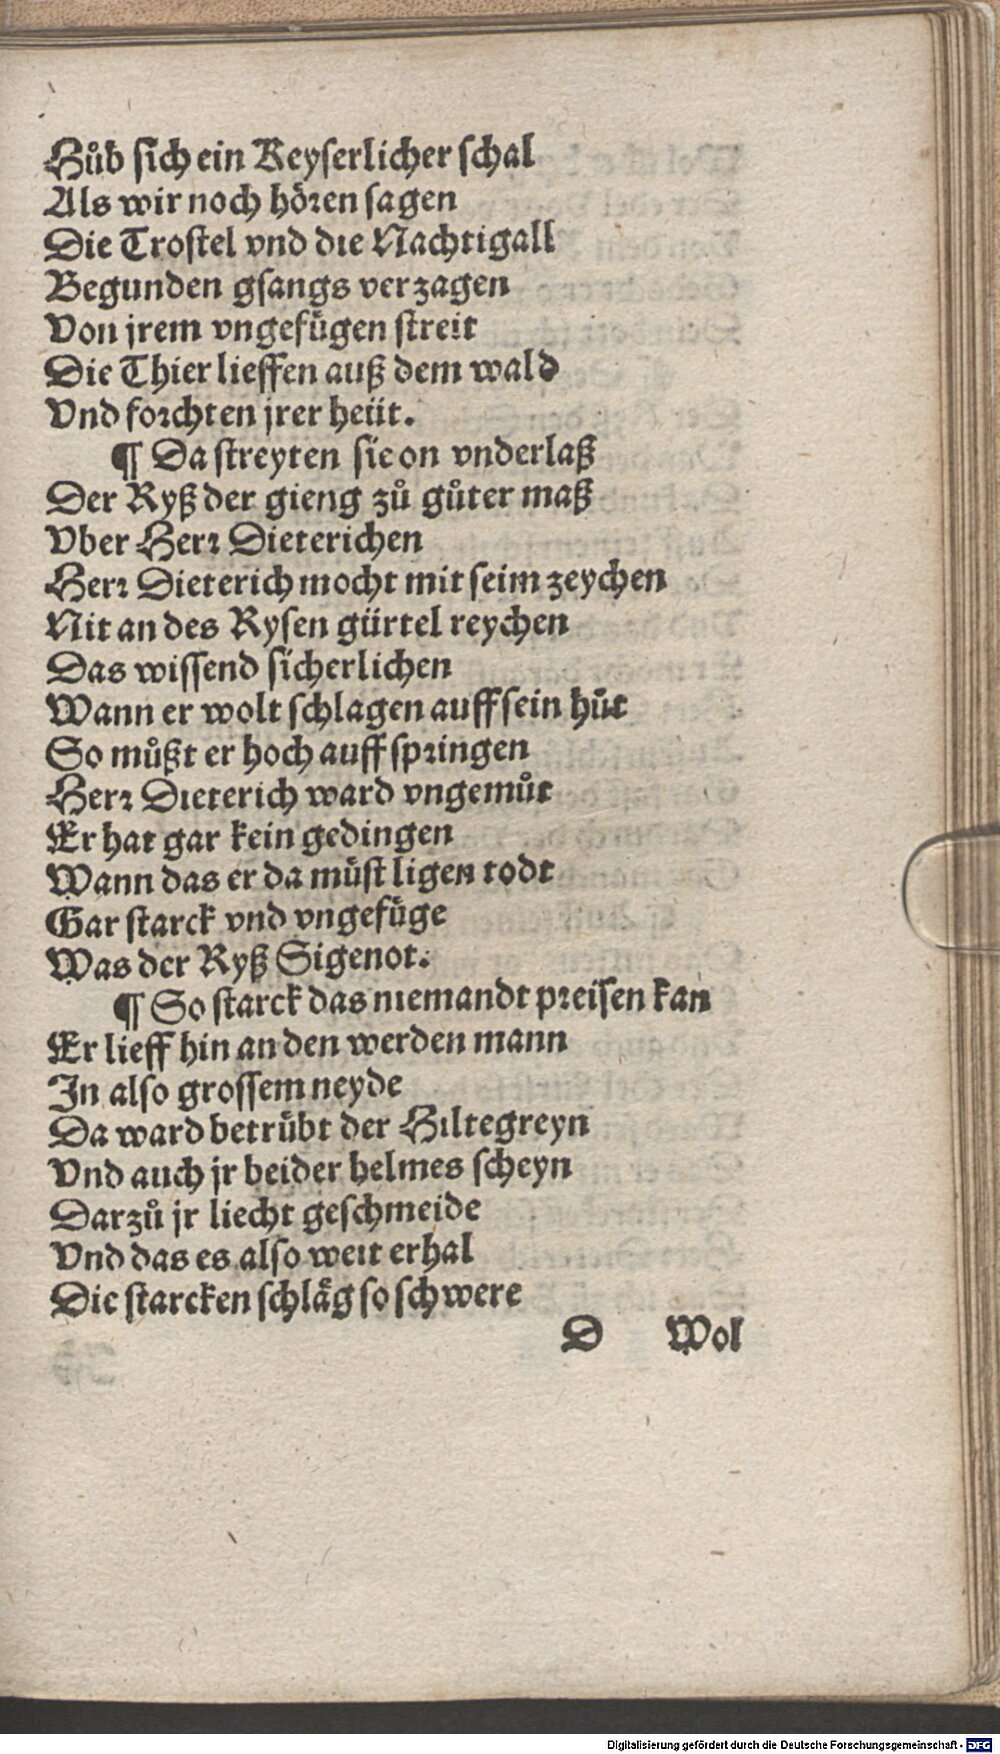 Hůb sich ein Keyserlicher schal
Als wir noch hören sagen
Die Trostel vnd die Nachtigall
Begunden gsangs verzagen
Von jrem vngefügen streit
Die Thier lieffen auß dem wald
Vnd forchten jrer heüt.
¶ Da streyten sie on vnderlaß
Der Ryß der gieng zů gůter maß
Vber Herr Dieterichen
Herr Dieterich mocht mit seim zeychen
Nit an des Rysen gürtel reychen
Das wissend sicherlichen
Wann er wolt schlagen auff sein hůt
So můßt er hoch auff springen
Herr Dieterich ward vngemůt
Er hat gar kein gedingen
Wann das er da müst ligen todt
Gar starck vnd vngefüge
Was der Ryß Sigenot.
¶ So starck das niemandt preisen kan
Er lieff hin an den werden mann
In also grossem neyde
Da ward betrübt der Hiltegreyn
Vnd auch jr beider helmes scheyn
Darzů jr liecht geschmeide
Vnd das es also weit erhal
Die starcken schläg so schwere
D Wol
Digitalisierung gefördert durch die Deutsche Forschungsgemeinschaft - DFG